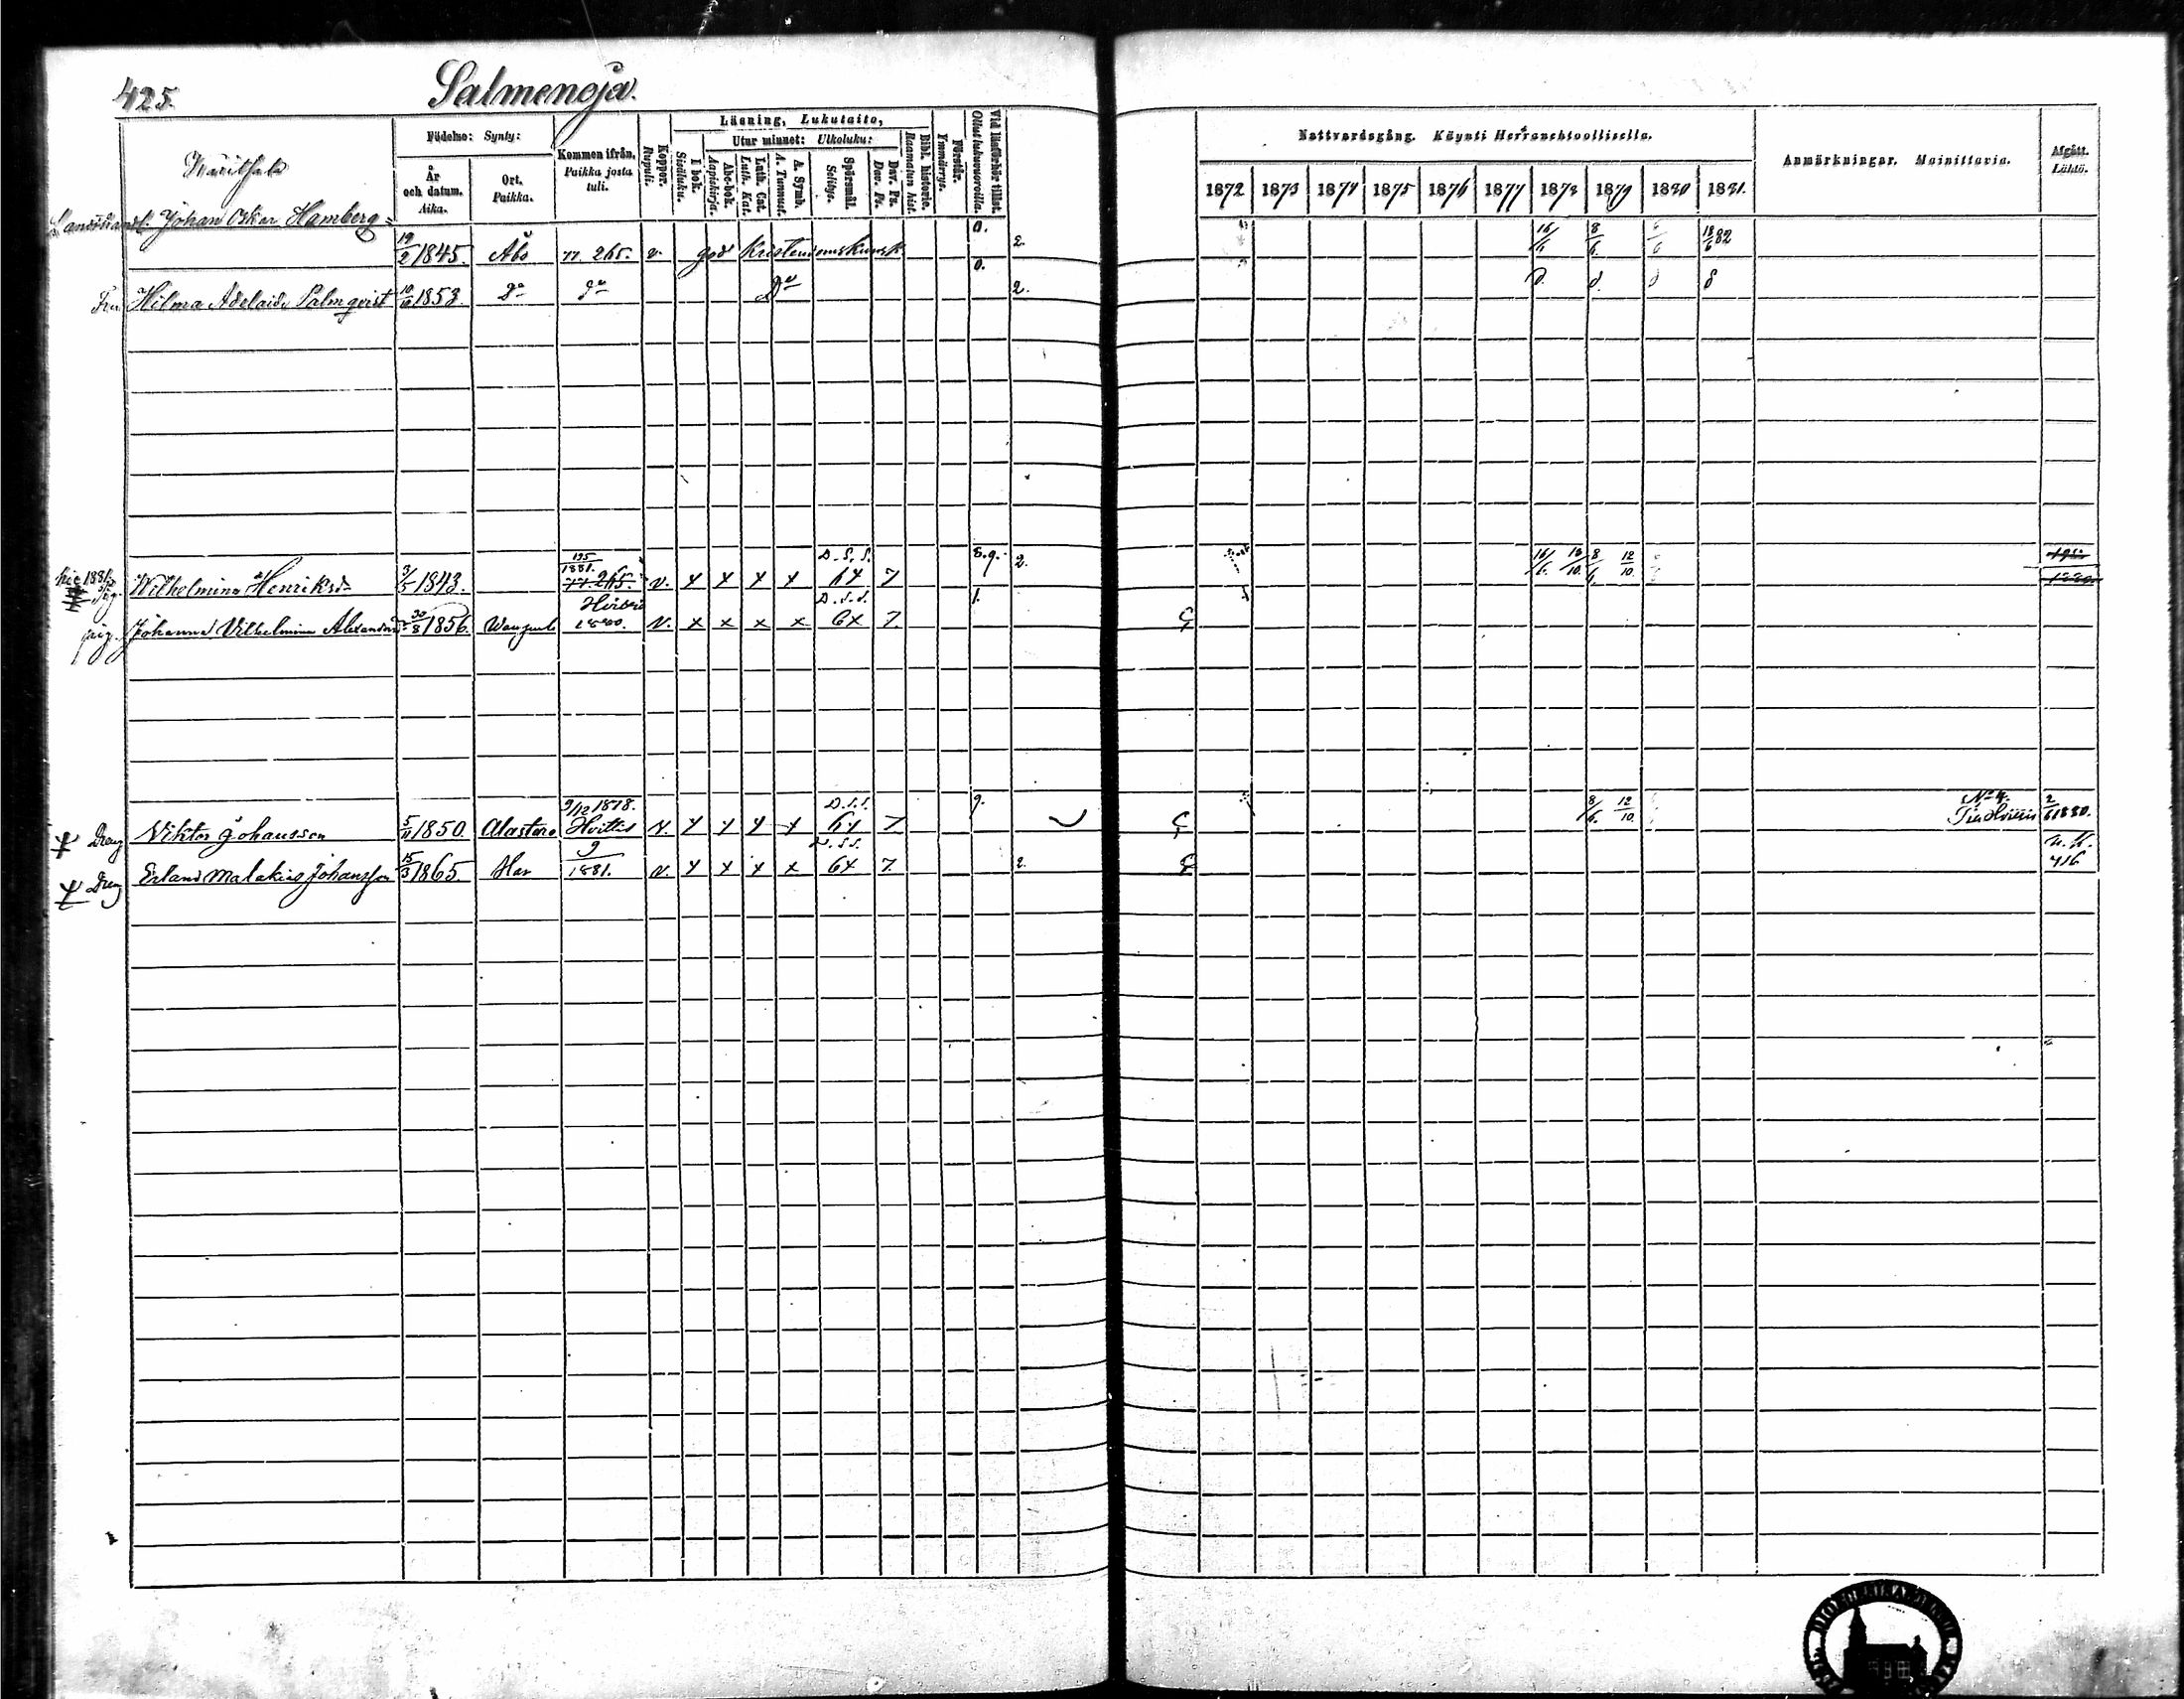 425. Salmenoja.
Födelse: Synty:
År och datum. Aika.
Ort. Paikka.
Kommen ifrån. Paikka josta tuli.
Koppor. Rupuli.
Läsning, Lukutaito,
I bok. Sisäluku.
Utur minnet: Ulkoluku:
Abc-bok. Aapiskirja.
Luth. Cat. Luth. Kat.
A. Symb. A. Tunnust.
Spörsmål. Selitys.
Dav. Ps. Dav. Ps.
Bibl. historie. Raamatun hist.
Förstår. Ymmärrys.
Vid läsförhör tillst. Ollut lukuvuoroilla.
Nattvardsgång. Käynti Herranehtoollisella.
1872 1873 1874 1875 1876 1877 1878 1879 1880 1881.
Anmärkningar. Mainittavia.
Afgått. Lähtö.
Johan Oskar Hamberg 19/2 1845. Åbo 77. 265. v. god kristendomskunsk. 0. 2. 16/6 8/6 18/6 82
Fru Hilma Adelaide Palmqvist 10/10 1853. Do do Do 0. 2.
Wilhelmina Henriksd. 3/5 1843. 195/1881. 77 265. v. x x x x D.S.S. 64 7 8.9. 2. 16/6. 18/10. 8/6. 12/10.
pig. Johanna Vilhelmina Alexandersd. 30/8 1856. 1880. v. x x x x D.S.S. 64 7. 1.
Dreng Viktor Johansson 5/11 1850. Alastaro 9/12 1878. Hvittis v. x x x x D.S.S. 64 7 9. 8/6. 12/10. No 4. Till Hvittis 2/6 1880.
Dreng Erland Malakias Johansson 15/3 1865. Har 9/1881. v. x x x x D.S.S. 64 7. 2. n. K. 416